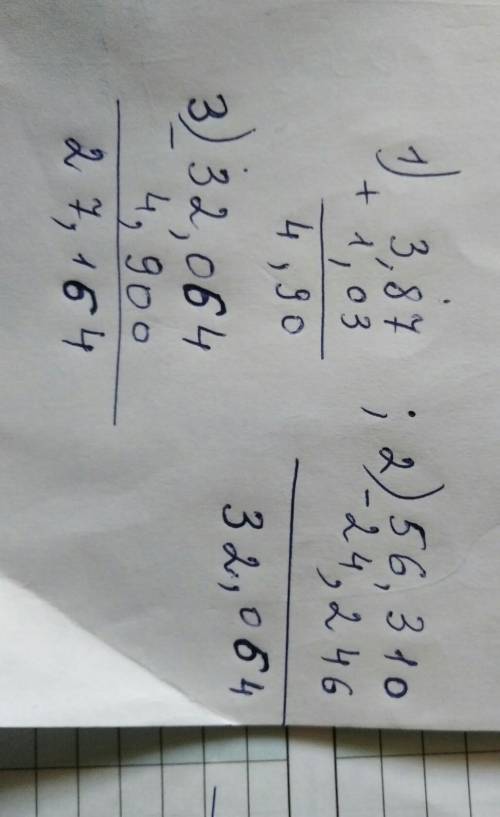 1) 3,87 ; 2) 56,310
+ 1,03 - 24,246
4,90 32,064
3) 32,064
- 4,900
27,164